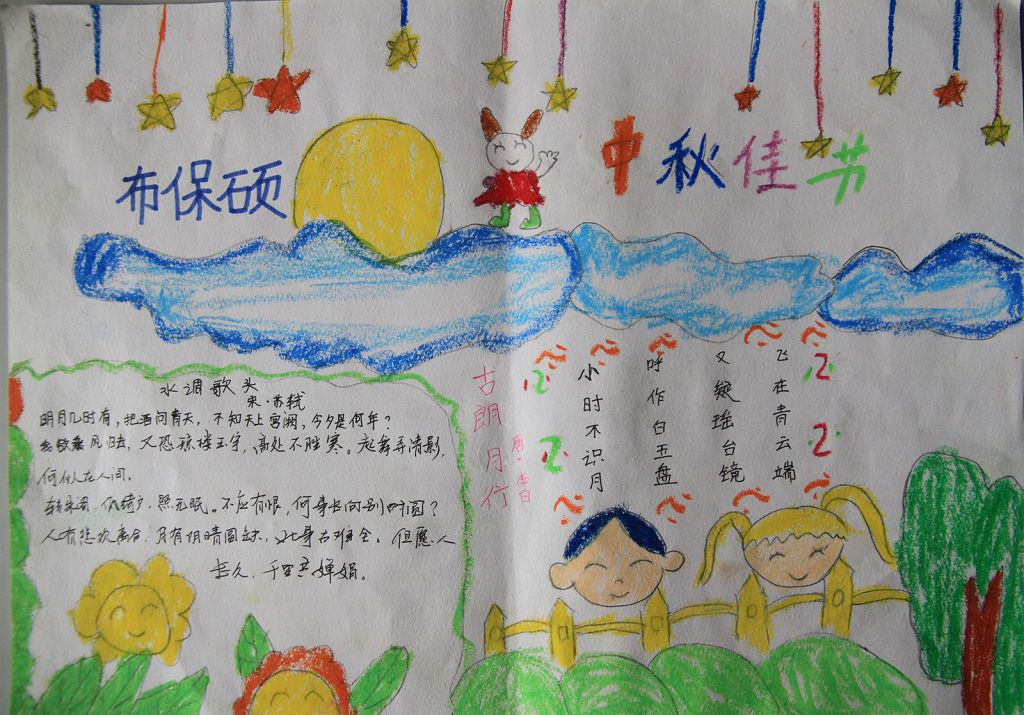 布保硕
中秋佳节
水调歌头
宋·苏轼
明月几时有，把酒问青天，不知天上宫阙，今夕是何年？
我欲乘风归去，又恐琼楼玉宇，高处不胜寒。起舞弄清影，
何似在人间。
转朱阁，低绮户，照无眠。不应有恨，何事长向别时圆？
人有悲欢离合，月有阴晴圆缺，此事古难全。但愿人
长久，千里共婵娟。
古朗月行
唐·李白
小时不识月
呼作白玉盘
又疑瑶台镜
飞在青云端